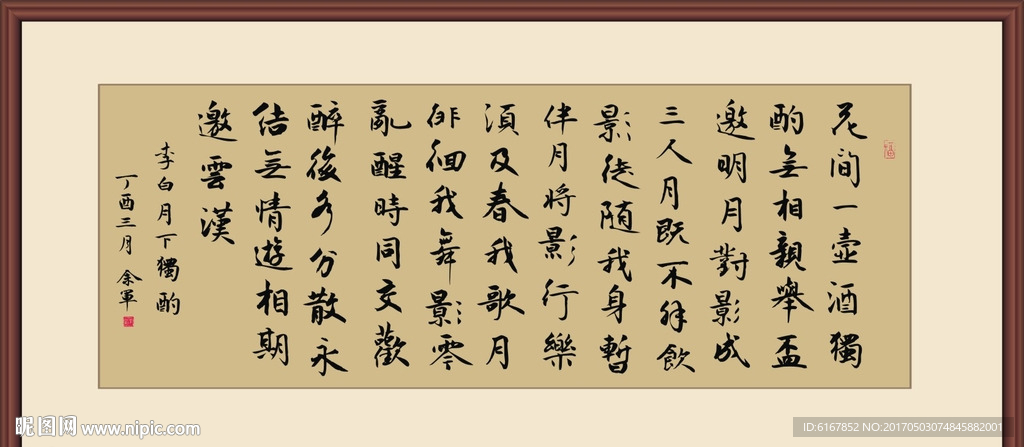 花間一壺酒獨
酌無相親舉盃
邀明月對影成
三人月既不解飲
影徒随我身暫
伴月将影行樂
須及春我歌月
徘徊我舞影零
亂醒時同交歡
醉後各分散永
结無情遊相期
邀雲漢
李白月下獨酌
丁酉三月 余軍
昵图网 www.nipic.com
ID:6167852 NO:20170503074845882001